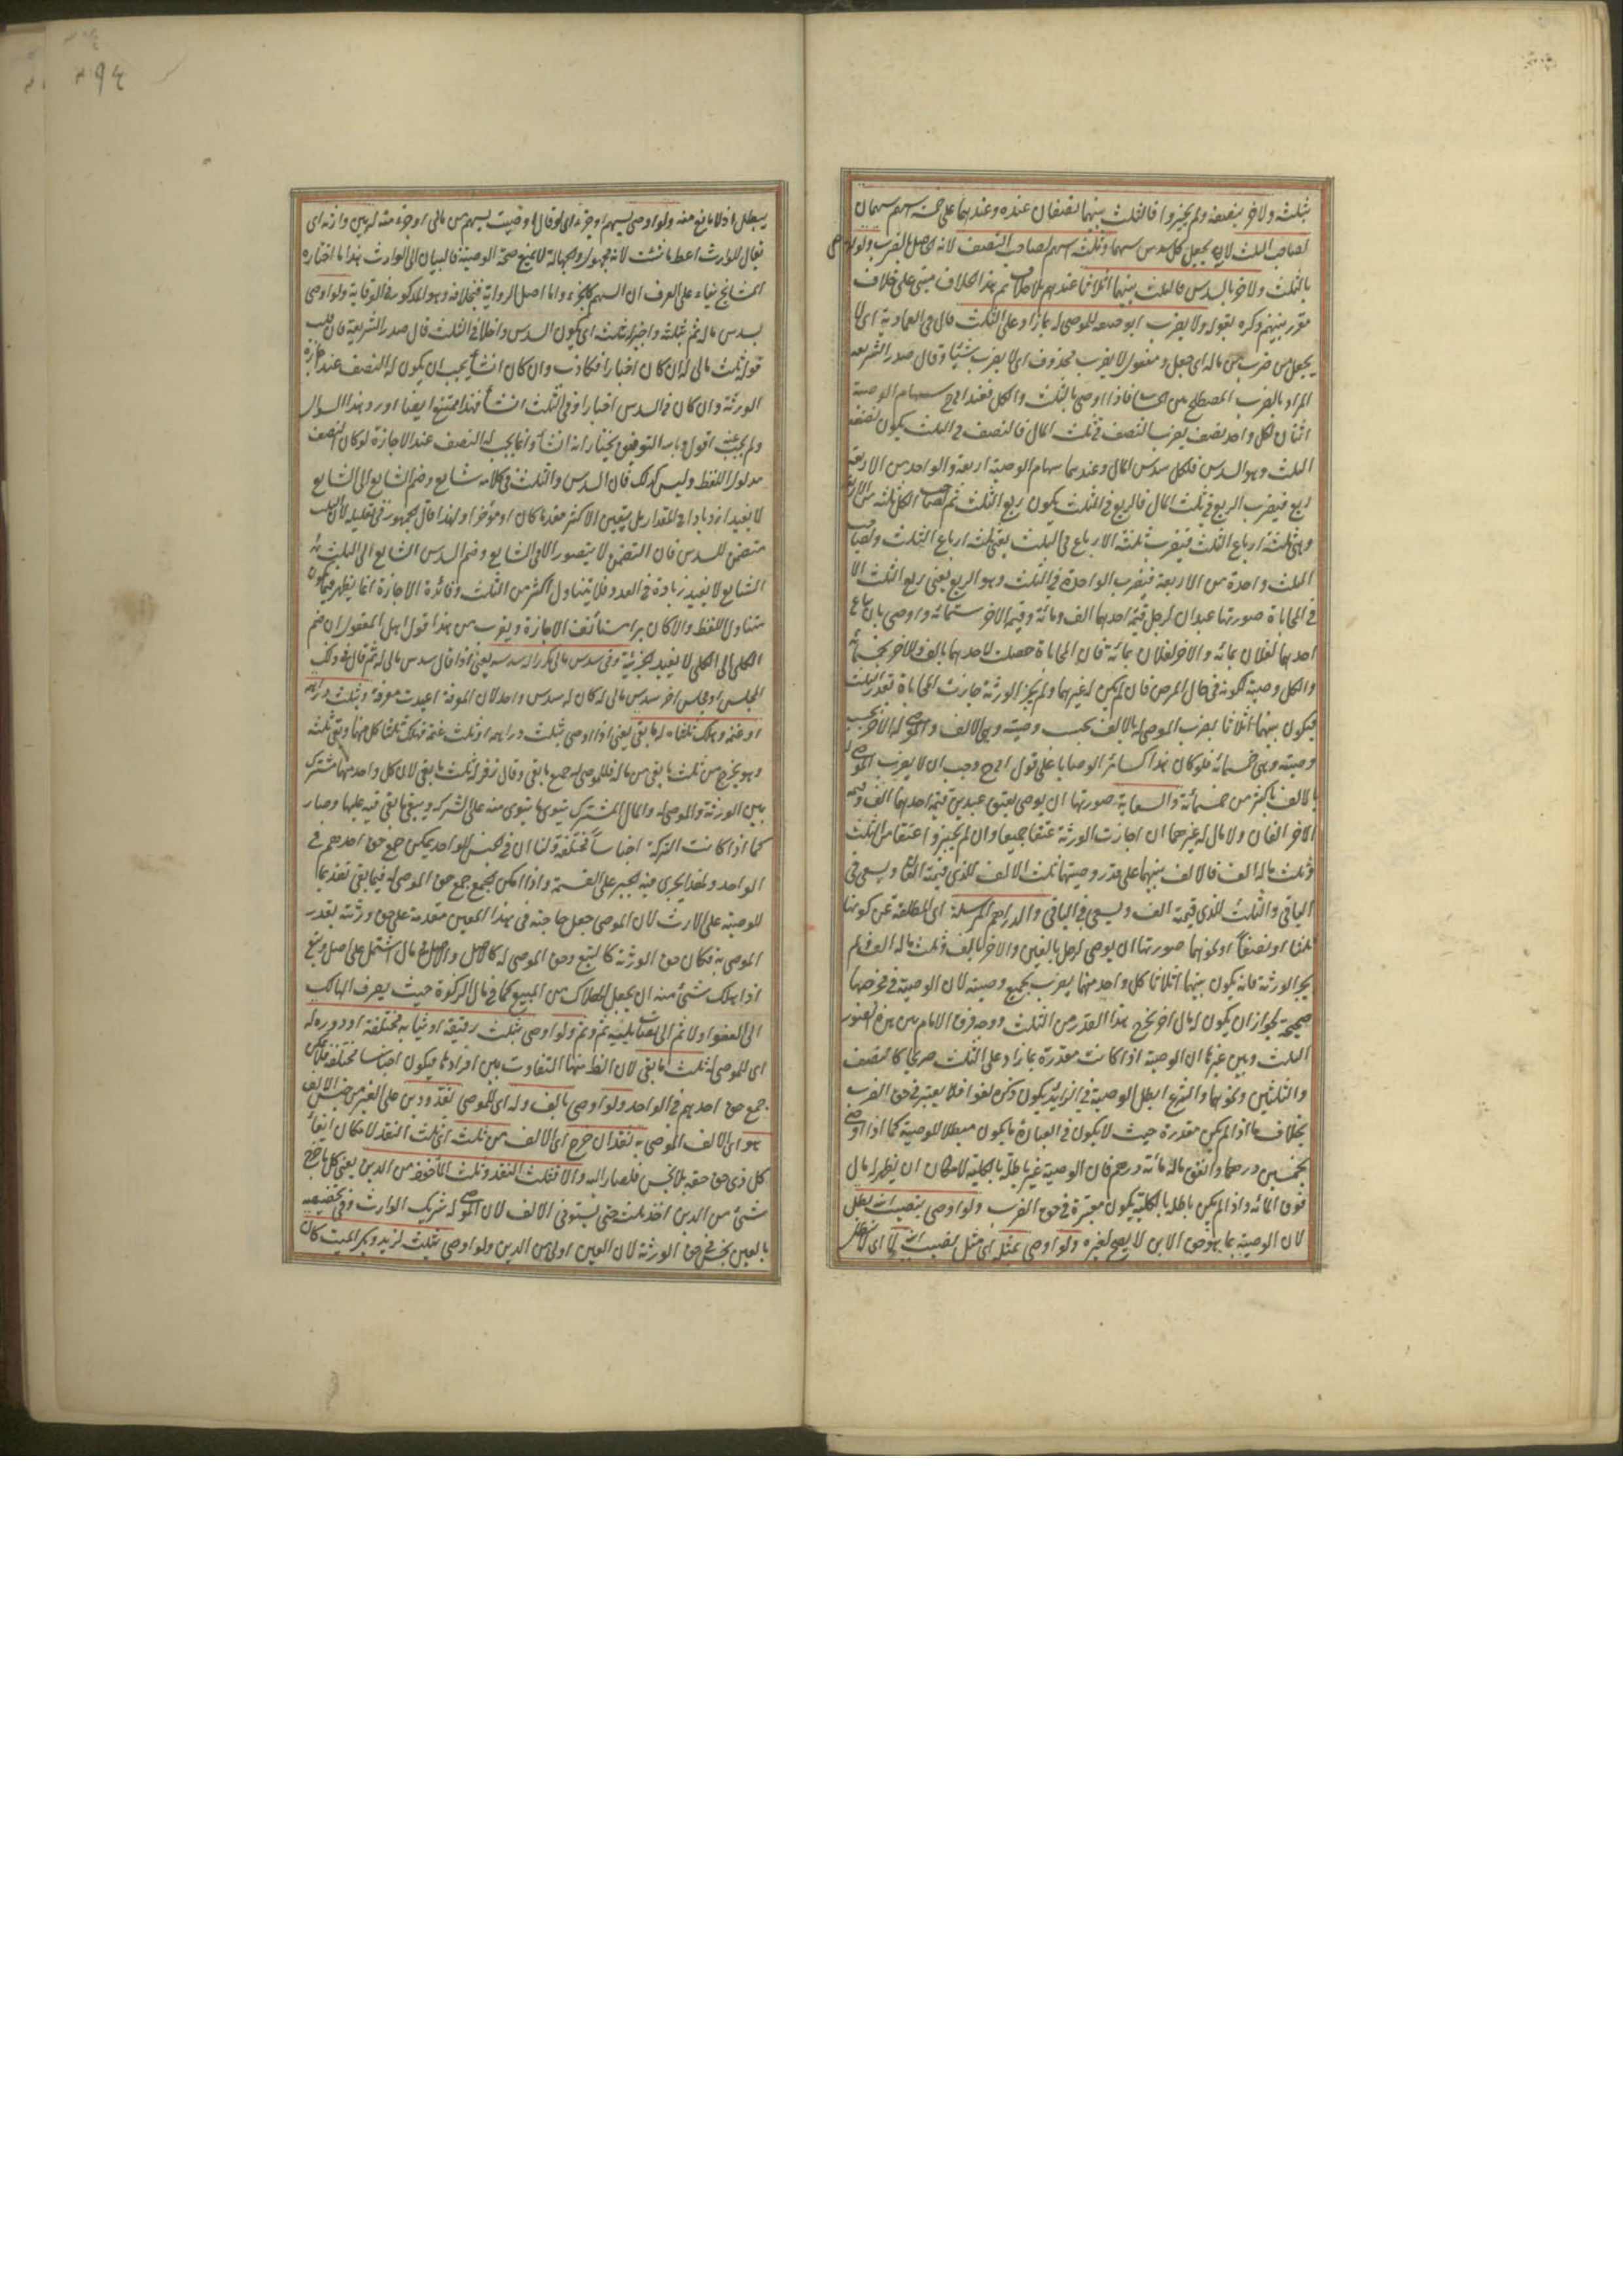 بثلثه ولاخر بنصفه ولم يجيزوا فالثلث بينهما نصفان عنده وعندهما على خمسة اسهم سهمان
لصاحب الثلث لانه يجعل كل سدس سهما وثلثة اسهم لصاحب النصف لانه الحاصل بالضرب ولو اوصى
بالثلث ولاخر بالسدس فالثلث بينهما اثلاثا عندهم بلا خلاف ثم هذا الخلاف مبنى على خلاف
مقرر بينهم ذكره بقوله ولا يضرب ابو حنيفة للموصى له بما زاد على الثلث قال فى العمادية اى لا
يجعل من ضرب من ماله اى جعل ومفعول لا يضرب محذوف اى لا يضرب شيئا وقال صدر الشريعة
المراد بالضرب المصطلح بين الحساب فاذا اوصى بالثلث والكل فعند ابى ح سهام الوصية
اثنان لكل واحد نصف يضرب النصف فى ثلث المال فالنصف فى الثلث يكون نصف
الثلث وهو السدس فلكل سدس المال وعندهما سهام الوصية اربعة والواحد من الاربعة
ربع فيضرب الربع فى ثلث المال فالربع فى الثلث يكون ربع الثلث ثم لصاحب الكل ثلثة من الاربعة
وهى ثلثة ارباع الثلث فيضرب ثلثة الارباع فى الثلث يعنى ثلثة ارباع الثلث ولصاحب
الثلث واحدة من الاربعة فيضرب الواحدة فى الثلث وهو الربع يعنى ربع الثلث الا
فى المحاباة صورتها عبدان لرجل قيمة احدهما الف ومائة وقيمة الاخر ستمائة واوصى بان يباع
احدهما لفلان بمائة والاخر لفلان بمائة فان المحاباة حصلت لاحدهما بالف وللاخر بخمسمائة
والكل وصية لكونه فى حال المرض فان لم يكن له غيرهما ولم يجز الورثة جازت المحاباة بقدر الثلث
فيكون بينهما اثلاثا يضرب الموصى له بالالف بحسب وصيته وهى الالف والموصى له الاخر بحسب
وصيته وهى خمسمائة فلو كان هذا كسائر الوصايا على قول ابى ح وجب ان لا يضرب الموصى له
بالالف باكثر من خمسمائة والسعاية صورتها ان يوصى بعتق عبدين قيمة احدهما الف وقيمة
الاخر الفان ولا مال له غيرهما ان اجازت الورثة عتقا جميعا وان لم يجيزوا عتقا من الثلث
وثلث ماله الف فالالف بينهما على قدر وصيتهما ثلث الالف للذى قيمته الف ويسعى فى
الباقى والثلث للذى قيمته الف ويسعى فى الباقى والدراهم المرسلة اى المطلقة عن كونها
ثلثا او نصفا او نحوهما صورتها ان يوصى لرجل بالفين والاخر بالف وثلث ماله الف ولم
يجز الورثة فانه يكون بينهما اثلاثا كل واحد منهما يضرب بجميع وصيته لان الوصية فى مخرجها
صحيحة لجواز ان يكون له مال اخر يخرج هذا القدر من الثلث ووجه فرق الامام بين هذه الصور
الثلث وبين غيرها ان الوصية اذا كانت مقدرة بما زاد على الثلث صريحا كالنصف
والثلثين ونحوهما والشرع ابطل الوصية فى الزائد يكون ذكره لغوا فلا يعتبر فى حق الضرب
بخلاف ما اذا لم يكن مقدرة حيث لا يكون فى العبارة ما يكون مبطلا للوصية كما اذا اوصى
بخمسين درهما واتفق ماله مائة درهم فان الوصية غير باطلة بالكلية لامكان ان يظهر له مال
فوق المائة واذا لم يكن باطلة بالكلية يكون معتبرة فى حق الضرب ولو اوصى بنصيب ابنه بطل
لان الوصية بما هو حق الابن لا يصح لغيره ولو اوصى بمثله اى مثل نصيب ابنه لا اى لا يبطل
٢٩٤
يبطل اذ لا مانع منه ولو اوصى بسهم او جزء اى لو قال اوصيت بسهم من مالى او جزء منه له يبين وارثه اى
يقال للوارث اعط ما شئت لانه مجهول والجهالة لا تمنع صحة الوصية فالبيان الى الوارث هذا ما اختاره
المشايخ بناء على العرف ان السهم كالجزء واما اصل الرواية فبخلافه وهو المذكور فى الوقاية ولو اوصى
بسدس ماله ثم بثلثه واجيز له ثلث اى يكون السدس داخلا فى الثلث قال صدر الشريعة فان قلت
قوله ثلث مالى له ان كان اخبارا فكاذب وان كان انشأ يجب ان يكون له النصف عند اجازة
الورثة وان كان فى السدس اخبارا وفى الثلث انشأ فهذا ممتنع ايضا اورد هذا السؤال
ولم يجب عنه اقول وبالله التوفيق يختار انه انشأ وانما يجب له النصف عند الاجازة لو كان النصف
مدلول اللفظ وليس كذلك فان السدس والثلث فى كلامه شايع وضم الشايع الى الشايع
لا يفيد ازديادا فى المقدار بل يتعين الاكثر مقدما كان او مؤخرا ولهذا قال الجمهور فى تعليله لان الثلث
متضمن للسدس فان التضمن لا يتصور الا فى الشايع وضم السدس الشايع الى الثلث
الشايع لا يفيد زيادة فى العدد فلا يتناول اكثر من الثلث وفائدة الاجازة انما يظهر فيما يكون
متناول اللفظ والا كان برا مستأنف الاجازة ويقرب من هذا قول اهل المعقول ان ضم
الكلى الى الكلى لا يفيد الجزئية وفى سدس مالى مكررا له سدسه يعنى اذا قال سدس مالى له ثم قال فى ذلك
المجلس او مجلس اخر سدس مالى له كان له سدس واحد لان المعرفة اعيدت معرفة وبثلث دراهمه
او غنمه وهلك ثلثاه له ما بقى يعنى اذا اوصى بثلث دراهمه او ثلث غنمه فهلك ثلثا كل منهما وبقى ثلثه
وهو يخرج من ثلث ما بقى من ماله فللموصى له جميع ما بقى وقال زفر له ثلث ما بقى لان كل واحد منهما مشترك
بين الورثة والموصى له والمال المشترك يتوى ما يتوى منه على الشركة ويبقى ما بقى فيه عليها وصار
كما اذا كانت التركة اجناسا مختلفة ولنا ان فى الجنس الواحد يمكن جمع حق احدهم فى
الواحد ولهذا يجرى فيه الجبر على القسمة واذا امكن الجمع جمع حق الموصى له فيما بقى تقديما
للوصية على الارث لان الموصى جعل حاجته فى هذا المعين مقدمة على حق ورثته بقدر
الموصى به فكان حق الورثة كالتبع وحق الموصى له كالاصل والاصل فى مال اشتمل على اصل وتبع
اذا هلك شئ منه ان يجعل الهلاك من التبع كما فى مال الزكوة حيث يصرف الهالك
الى العفو اولا ثم الى نصاب يليه ثم وثم ولو اوصى بثلث رقيقه او ثيابه مختلفة او دوره له
اى للموصى له ثلث ما بقى لان الظ منها التفاوت بين افرادها فيكون اجناسا مختلفة فلا يمكن
جمع حق احدهم فى الواحد ولو اوصى بالف وله اى للموصى نقد ودين على الغير من جنس الالف
هو اى الالف الموصى به نقد ان خرج اى الالف من ثلث اى ثلث النقد لامكان ايفاء
كل ذى حق حقه بلا بخس فيصار اليه والا فثلث النقد وثلث المأخوذ من الدين يعنى كل ما خرج
شئ من الدين اخذ ثلثه حتى يستوفى الالف لان الموصى له شريك الوارث وفى تخصيصه
بالعين بخس فى حق الورثة لان العين اولى من الدين ولو اوصى بثلث لزيد وبكر الميت كان